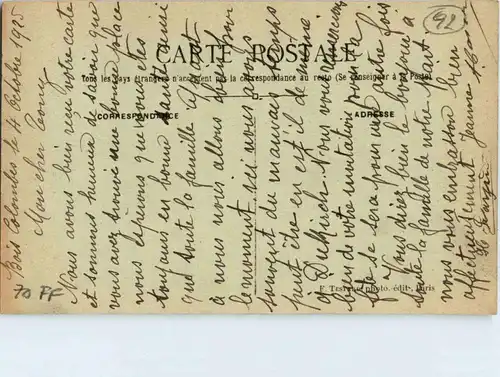 CARTE POSTALE
Tous les pays étrangers n'acceptent pas la correspondance au recto (Se renseigner à la Poste)
CORRESPONDANCE
ADRESSE
F. Testard, photo. édit., Paris
92
70 FF
Bois Colombes le 4 Octobre 1925
Mon cher
Nous avons bien reçu votre carte
et sommes heureux de savoir que
vous avez trouvé une bonne place
nous espérons que vous êtes
toujours en bonne santé ainsi
que toute la famille. Quant
à nous nous allons bien pour
le moment, ici nous avons
souvent du mauvais temps
peut être en est il de même
à Dunkirch. Nous vous
bien de votre invitation peut être
elle se sera pour une autre fois
Vous direz bien le bonjour à
toute la famille de notre part
nous vous embrassons bien
affectueusement Jeanne